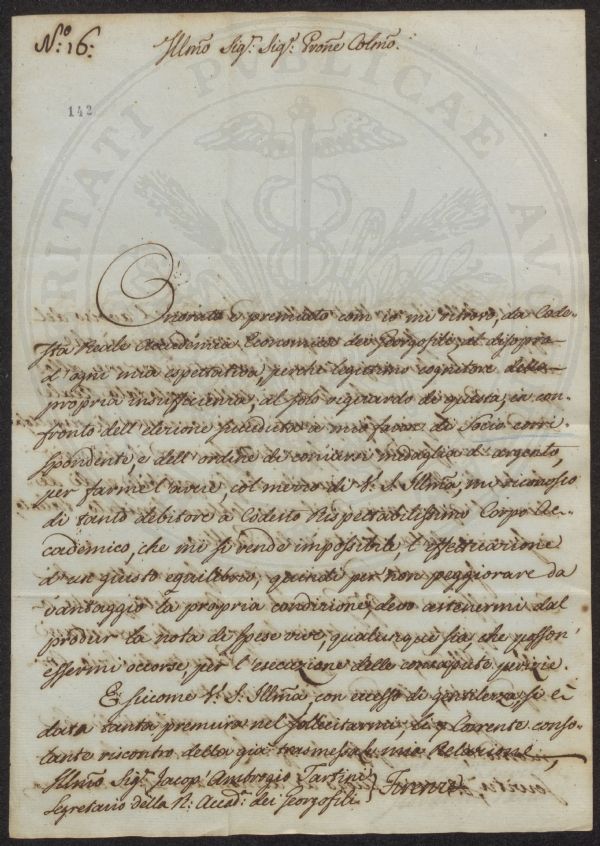 N.º 16:
Illmo Sigr. Sigr. Prone Colmo.
142
PROSPERITATI PUBLICAE AUGENDAE
Onorato e premiato com'io mi ritrovo, da Code-
sta Reale Accademia Economica dei Georgofili al disopra
d'ogni mia espettativa, perché legittimo cognitore della
propria insufficienza, al solo riguardo di questa, in con-
fronto dell'elezione seceduta a mio favore di Socio corri-
spondente, e dell'ordine di coniarsi medaglia d'argento,
per farmel'avere, col mezzo di V. S. Illma, mi riconosco
di tanto debitore a Codesto Rispettabilissimo Corpo Ac-
cademico, che mi si rende impossibile l'effettuazione
d'un giusto equilibrio; quindi per non peggiorare da
vantaggio la propria condizione, devo astenermi dal
produr la nota di spese vive, qualunque sia, che posson'
essermi occorse per l'esecuzione delle consapute perizie.
E siccome V. S. Illma, con eccesso di gentilezza, si è
data tanta premura nel sollecitarmi, li Corrente conso-
lante riscontro della già trasmessa mia Relazione,
Illmo Sigr. Jacopo Ambrogio Tartini
Segretario della R. Accad. dei Georgofili } Firenze